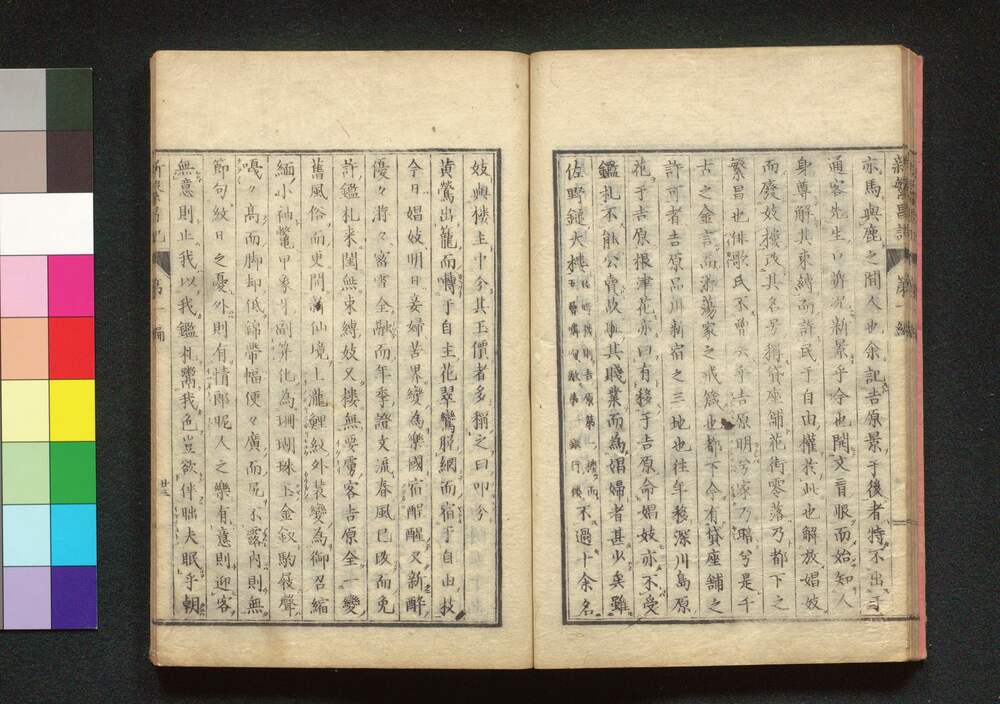 亦馬與鹿之間人也余記吉原景于後者特不出于
通客先生口濟況新景乎今也開文盲眼而始知人
身尊解其束縛而許民于自由權於此也解放娼妓
而廢妓樓改其名号稱貸座舗花街零落乃都下之
繁昌也俳歌氏不曾云乎吉原明兮家乃暗兮是千
古之金言而蕩家之戒箴也都下今有貸座舗之
許可者吉原品川新宿之三地也往年移深川島原
花于吉原根津花亦曰有移于吉原命娼妓亦不受
鑑札不能公賣故其賤業而為娼婦者甚少矣雖
佐野鎚大樓 不過十余名
妓與楼主中分其玉價者多稱之曰叩分
黃鶯出籠而囀于自主花翠鸞脫網而宿于自由技
今日娼妓明日妾婦苦界變為樂國宿酲醒又新醉
優々游々審害全融而年季證文流春風已改而免
許鑑札来閨無束縛妓又楼無要虜客吉原全一變
舊風俗而更開滿仙境上瀧鯉紋外裝變為御召縮
緬小袖鼈甲象牙副笄化為珊瑚珠玉金釵駒篏聲
嘎々高而脚却低錦帶幅便々廣而尻不露內則無
節句紋日之憂外則有情郎昵人之樂有意則迎客
無意則止我以我鑑札鬻我色豈欲伴眬夫眠乎朝
第一編
廿三